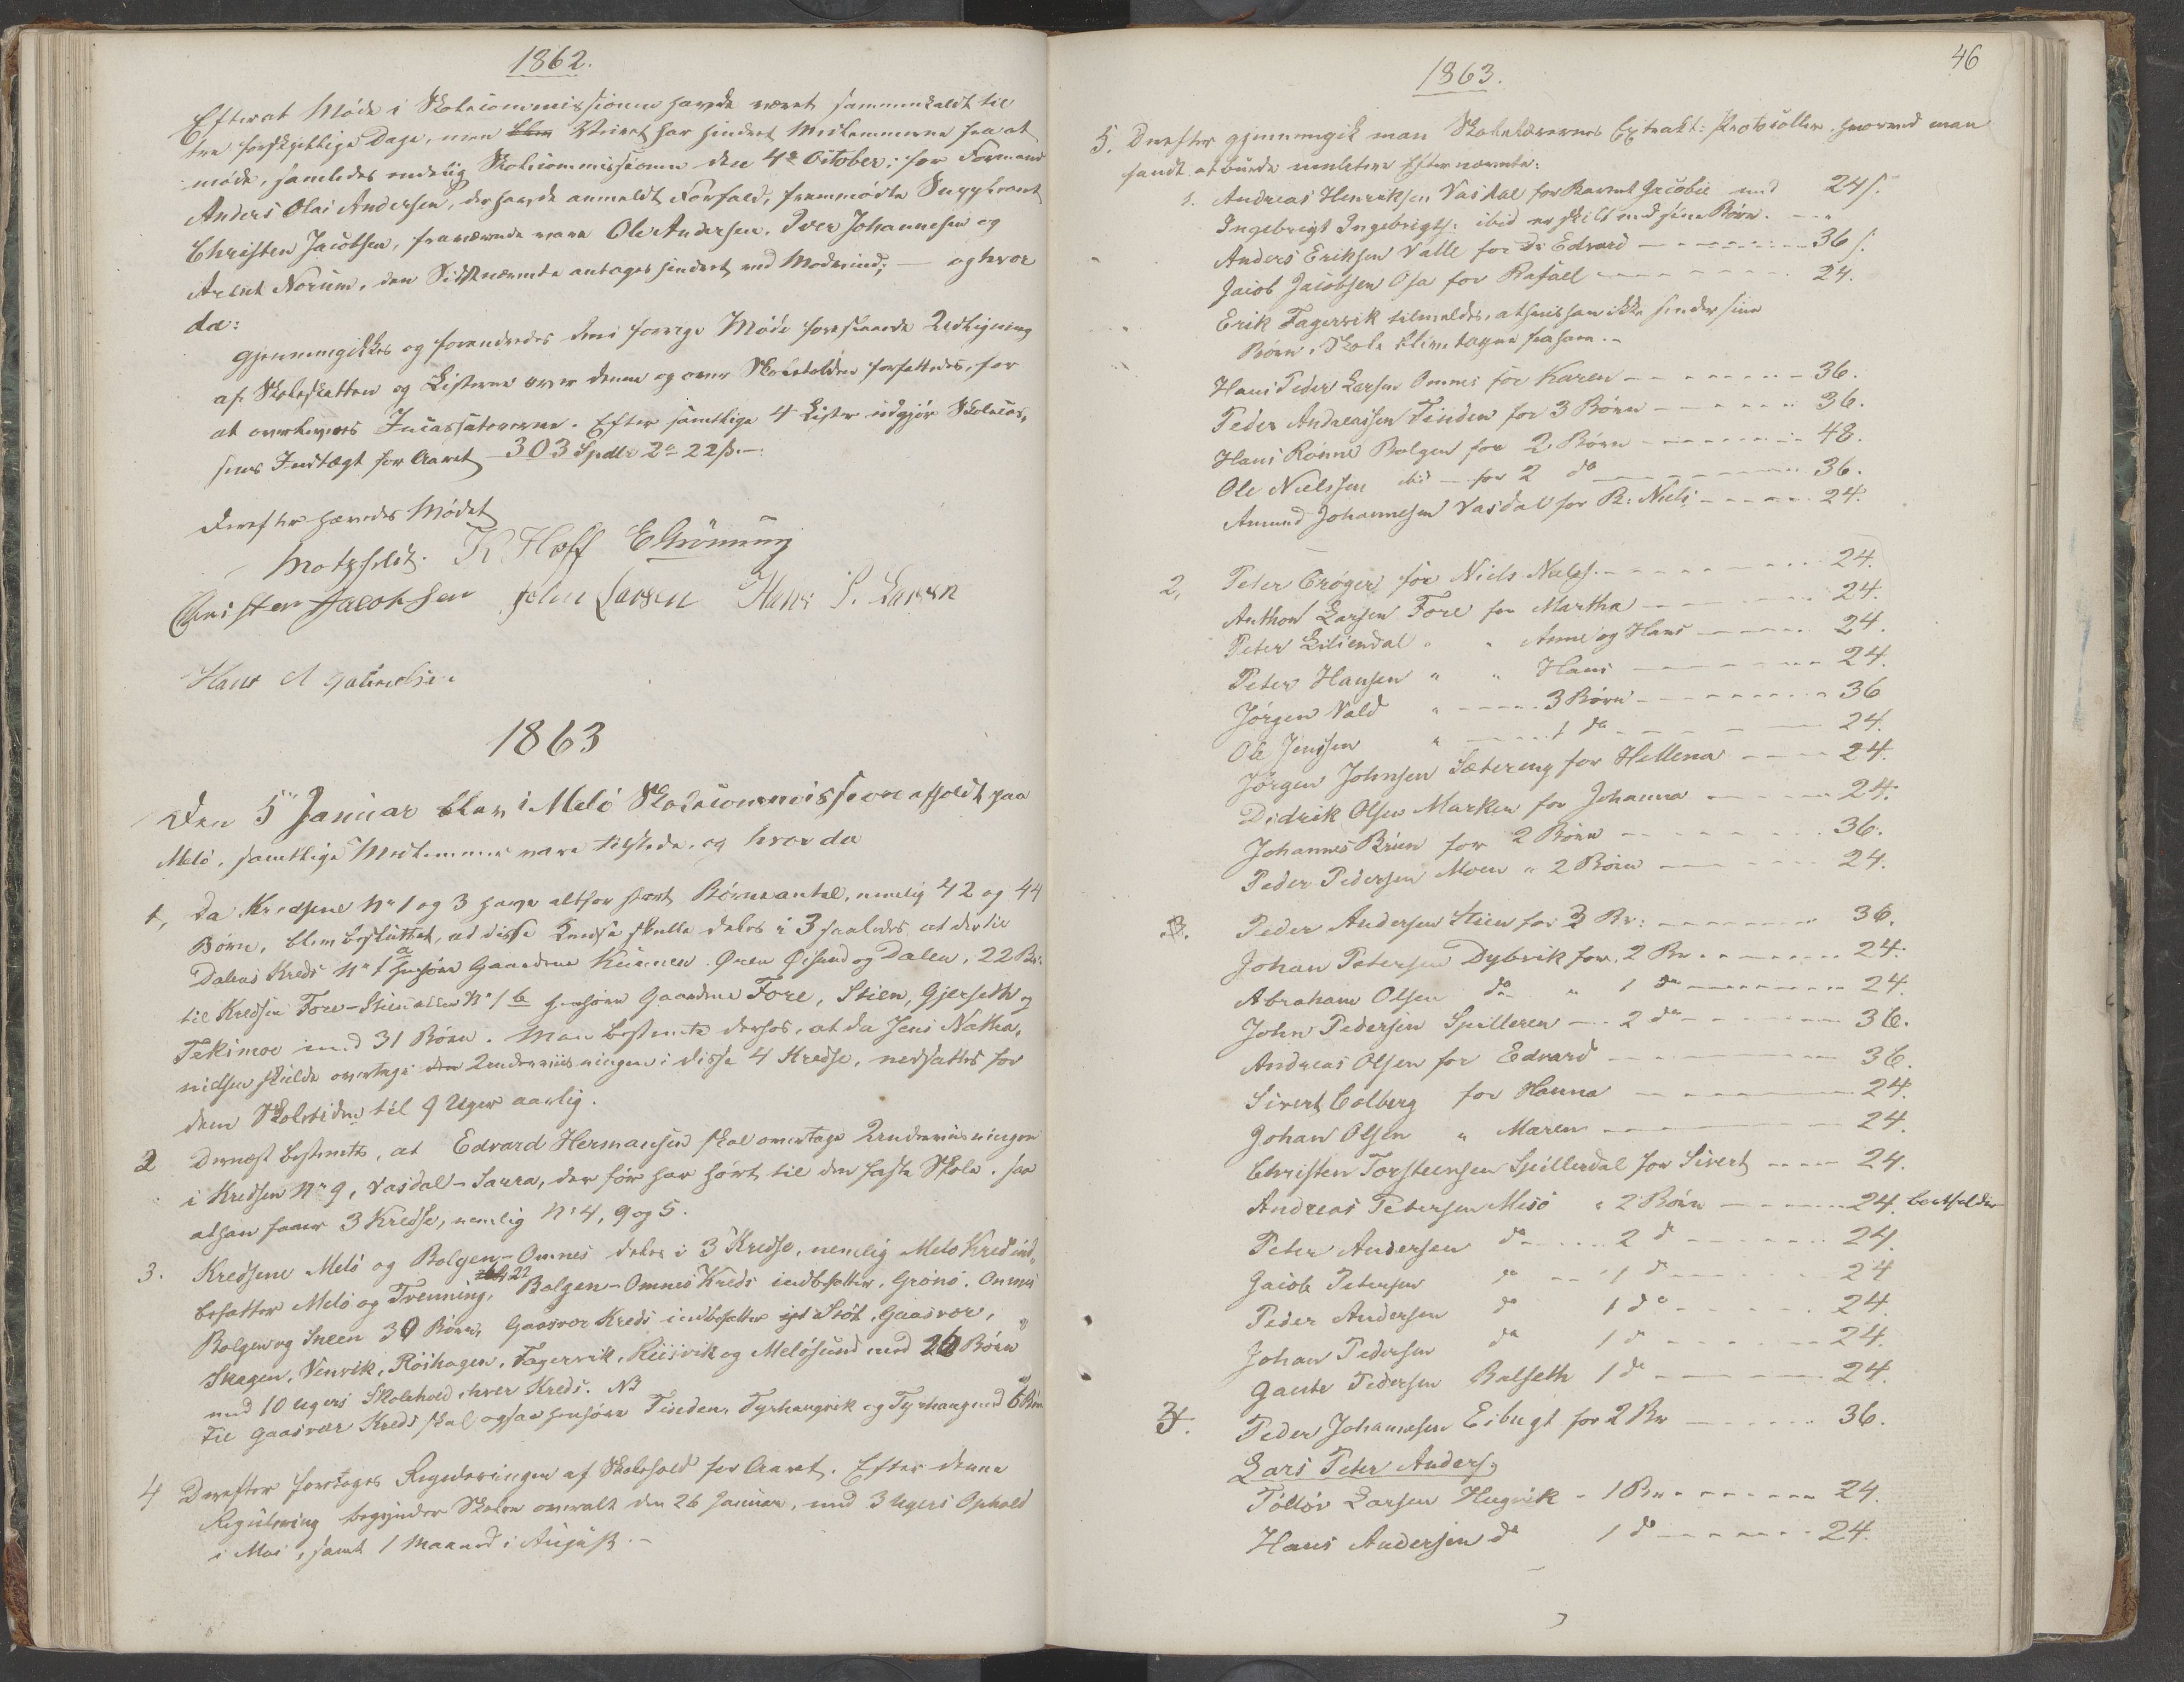 1862.
Efterat Møde i Skolecommissionen havde været sammenkaldt til
tre forskjellige Dage, men Veiret har hindret Medlemmerne fra at
møde, samledes endelig Skolecommissionen den 4de October; for Formand
Anders Olai Andersen, der havde anmeldt Forfald, fremmødte Suppleant
Christen Jacobsen, fraværende vare Ole Andersen, Iver Johannesen og
Arent Norum, den Sidstnævnte antages hindret ved Modvind; — og hvor
da:
Gjennemgikkes og forandredes den i forrige Møde foretagne Udligning
af Skoleskatten og Listerne over denne og over Skoleholdet forfattedes, for
at overleveres Incassatorerne. Efter samtlige 4 Lister udgjør Skolecas-
sens Indtægt for Aaret 303 Spdlr 2 22 ß. —
Derefter hævedes Mødet
Motzfeldt. K Hoff E Grönning
Christen Jacobsen John Larsen Hans P. Larsen
Hans A
1863
Den 5te Januar blev i Melö Skolecommission afholdt paa
Melö, samtlige Medlemmer vare tilstede, og hvor da
1, Da Kredsene No 1 og 3 have altfor stort Børneantal, nemlig 42 og 44
Børn, blev besluttet, at disse Kredse skulle deles i 3 saaledes at der til
Dalens Kreds No 1 a henhøre Gaardene Kunnen, Øren, Øisund og Dalen, 22 Br.
til Kredsen Fore-Stien eller No 1 b henhøre Gaardene Fore, Stien, Gjerseth og
Tekimoe med 31 Børn. Man bestemte derhos, at da Jens Natha-
nielsen skulde overtage Underviisningen i disse 4 Kredse, nedsattes for
dem Skoletiden til 9 Uger aarlig.
2 Dernæst bestemtes, at Edvard Hermansen skal overtage Underviisningen
i Kredsen No 9, Vasdal-Saura, der før har hørt til den faste Skole, saa
at han faaer 3 Kredse, nemlig No 4, 9 og 5.
3. Kredsene Melö og Bolgen-Omnes deles i 3 Kredse, nemlig Melö Kreds ind-
befatter Melö og Trenning, 22 Bolgen-Omnes Kreds indbefatter, Grönö, Omnes
Bolgen og Sneen 30 Børn, Gaasvær Kreds indbefatter Stöt, Gaasvær,
Skagen, Venvik, Röihagen, Fagervik, Reisvik og Melösund med 26 Børn
med 10 Ugers Skolehold i hver Kreds. NB
Til Gaasvær Kreds skal ogsaa henhøre Tinden, Tyrhaugvik og Tyrhaug med 6 Børn
4 Derefter foretoges Reguleringen af Skolehold for Aaret. Efter denne
Regulering begynder Skolen overalt den 26 Januar, med 3 Ugers Ophold
i Mai, samt 1 Maaned i August. —
46
1863.
5. Derefter gjennemgik man Skolelærernes Extrakt: Protocoller, hvorved man
fandt at burde mulctere Efternævnte:
1. Andreas Henriksen Vasdal for Barnet Jacobie med 24 ß.
Ingebrigt Ingebrigts: ibid er skilt med sine Børn. — "
Anders Eriksen Valle for Edvard — 36 ß.
Jacob Jacobsen Osa for Rafael — 24.
Erik Fagervik tilmeldes, at hvis han ikke sender sine
Børn i Skole blive tagne fra ham. —
Hans Peder Larsen Omnes for Karen — 36.
Peder Andreassen Tinden for 3 Børn — 36.
Hans Rönne Bolgen for 2 Børn — 48.
Ole Nielssen ibid — for 2 do — 36.
Amund Johannesen Vasdal for B: Niels — 24.
2, Peter Cröger for Niels Niels. — 24.
Anthon Larsen Fore for Martha — 24.
Peter Liliendal " " Anne og Hans — 24.
Peter Hansen " " Hans — 24.
Jörgen Vald " — 3 Børn — 36
Ole Jenssen " — 1 do — 24.
Jörgen Johnsen Sætering for Hellena — 24.
Didrik Olsen Marken for Johanna — 24.
Johannes Bruen for 2 Børn — 36.
Peder Pedersen Moen " 2 Børn — 24.
3. Peder Andersen Stien for 3 Br: — 36.
Johan Petersen Dybvik for 2 Br — 24.
Abraham Olsen do " 1 do — 24.
John Pedersen Spilleren — 2 do — 36.
Andreas Olsen for Edvard — 36.
Sivert Colberg for Hanna — 24.
Johan Olsen " Maren — 24.
Christen Torsteensen Spillerdal for Sivert — 24.
Andreas Petersen Mesö " 2 Børn — 24. bortfalder
Peter Andersen do — 2 do — 24.
Jacob Petersen do — 1 do — 24
Peder Andersen do 1 do — 24.
Johan Pedersen do 1 do — 24.
Gaute Pedersen Balseth 1 do — 24.
4. Peder Johannesen Eibugt for 2 Br — 36.
Lars Peter Anders.
Töllöv Larsen Hugvik - 1 Br — 24.
Hans Andersen do 1 do — 24.